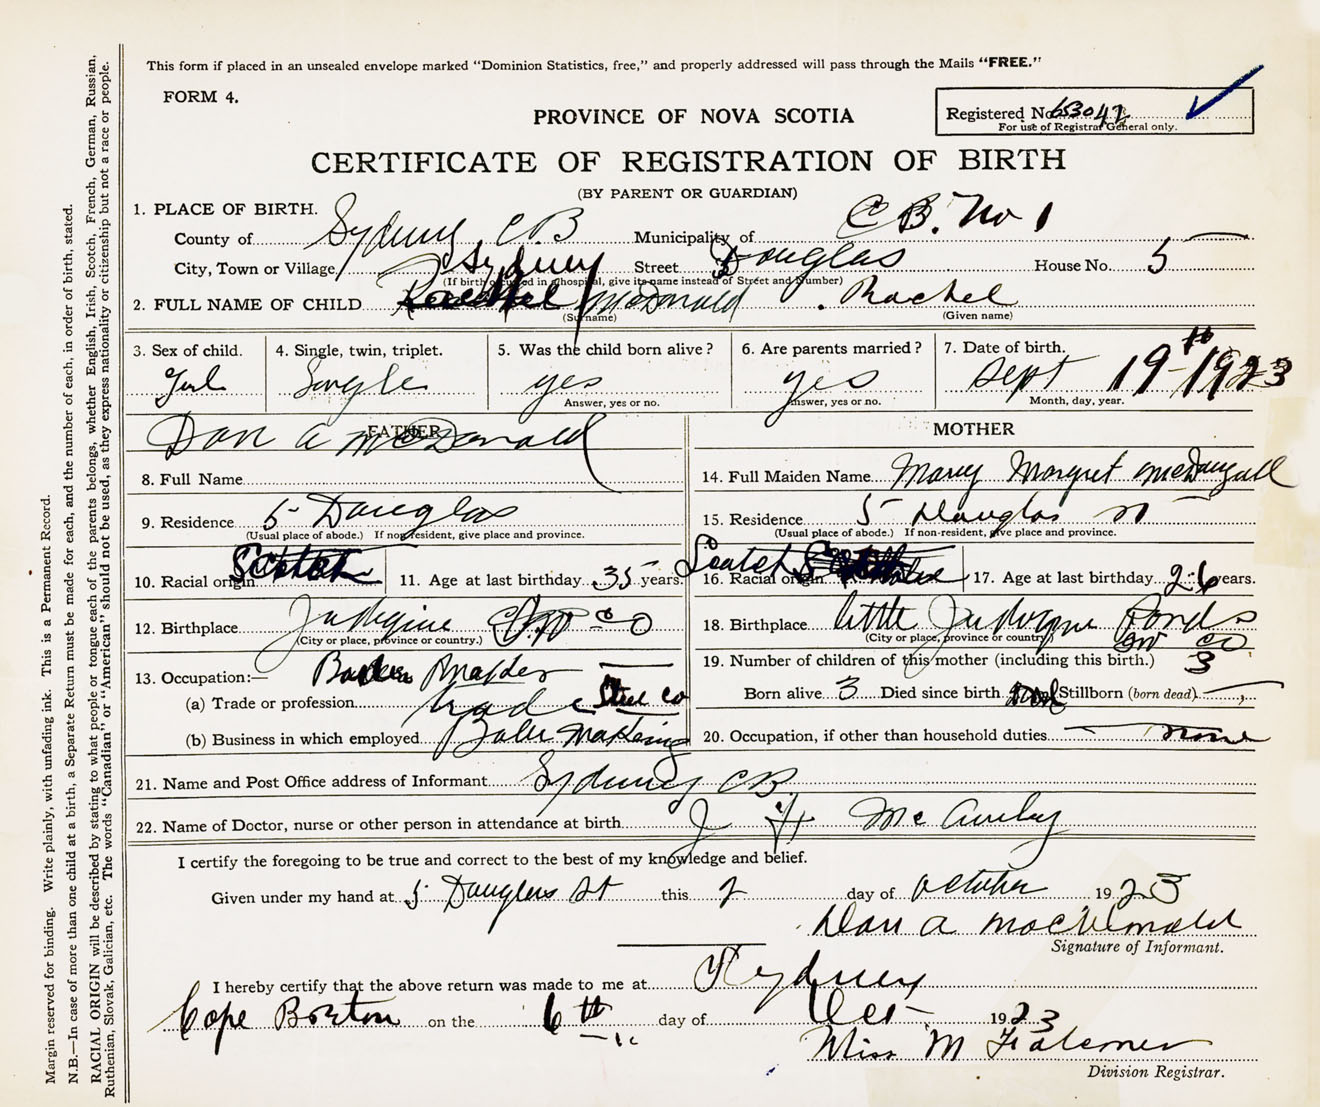 This form if placed in an unsealed envelope marked "Dominion Statistics, free," and properly addressed will pass through the Mails "FREE."
FORM 4.
PROVINCE OF NOVA SCOTIA
Registered No. 653042
For use of Registrar General only.
CERTIFICATE OF REGISTRATION OF BIRTH
(BY PARENT OR GUARDIAN)
1. PLACE OF BIRTH.
County of Sydney C.B Municipality of C B. No 1
City, Town or Village Sydney Street Douglas House No. 5
(If birth occurred in a hospital, give its name instead of Street and number)
2. FULL NAME OF CHILD McDonald Rachel
(Surname) (Given name)
3. Sex of child. 4. Single, twin, triplet. 5. Was the child born alive? 6. Are parents married? 7. Date of birth.
Girl Single yes yes Sept 19th 1923
Answer, yes or no. Answer, yes or no. Month, day, year.
FATHER MOTHER
Dan A McDonald
8. Full Name 14. Full Maiden Name Mary Margret McDougall
9. Residence 5 Douglas 15. Residence 5 Douglas
(Usual place of abode.) If non-resident, give place and province. (Usual place of abode.) If non-resident, give place and province.
10. Racial origin Scotch 11. Age at last birthday 35 years. 16. Racial origin Scotch 17. Age at last birthday 26 years.
12. Birthplace Judique 18. Birthplace little Judique Ponds
(City or place, province or country.) (City or place, province or country)
13. Occupation:— 19. Number of children of this mother (including this birth.) 3
(a) Trade or profession trade Steel Co Born alive 3 Died since birth Stillborn (born dead)
(b) Business in which employed Making 20. Occupation, if other than household duties none
21. Name and Post Office address of Informant Sydney CB
22. Name of Doctor, nurse or other person in attendance at birth J H
I certify the foregoing to be true and correct to the best of my knowledge and belief.
Given under my hand at 5 Douglas St this 2 day of October 1923
Dan A MacDonald
Signature of Informant.
I hereby certify that the above return was made to me at Sydney
Cape Breton on the 6th day of Oct 1923
Miss M Falconer
Division Registrar.
Margin reserved for binding. Write plainly, with unfading ink. This is a Permanent Record.
N.B.—In case of more than one child at a birth, a Separate Return must be made for each, and the number of each, in order of birth, stated.
RACIAL ORIGIN will be described by stating to what people or tongue each of the parents belongs, whether English, Irish, Scotch, French, German, Russian,
Ruthenian, Slovak, Galician, etc. The words "Canadian" or "American" should not be used, as they express nationality or citizenship but not a race or people.